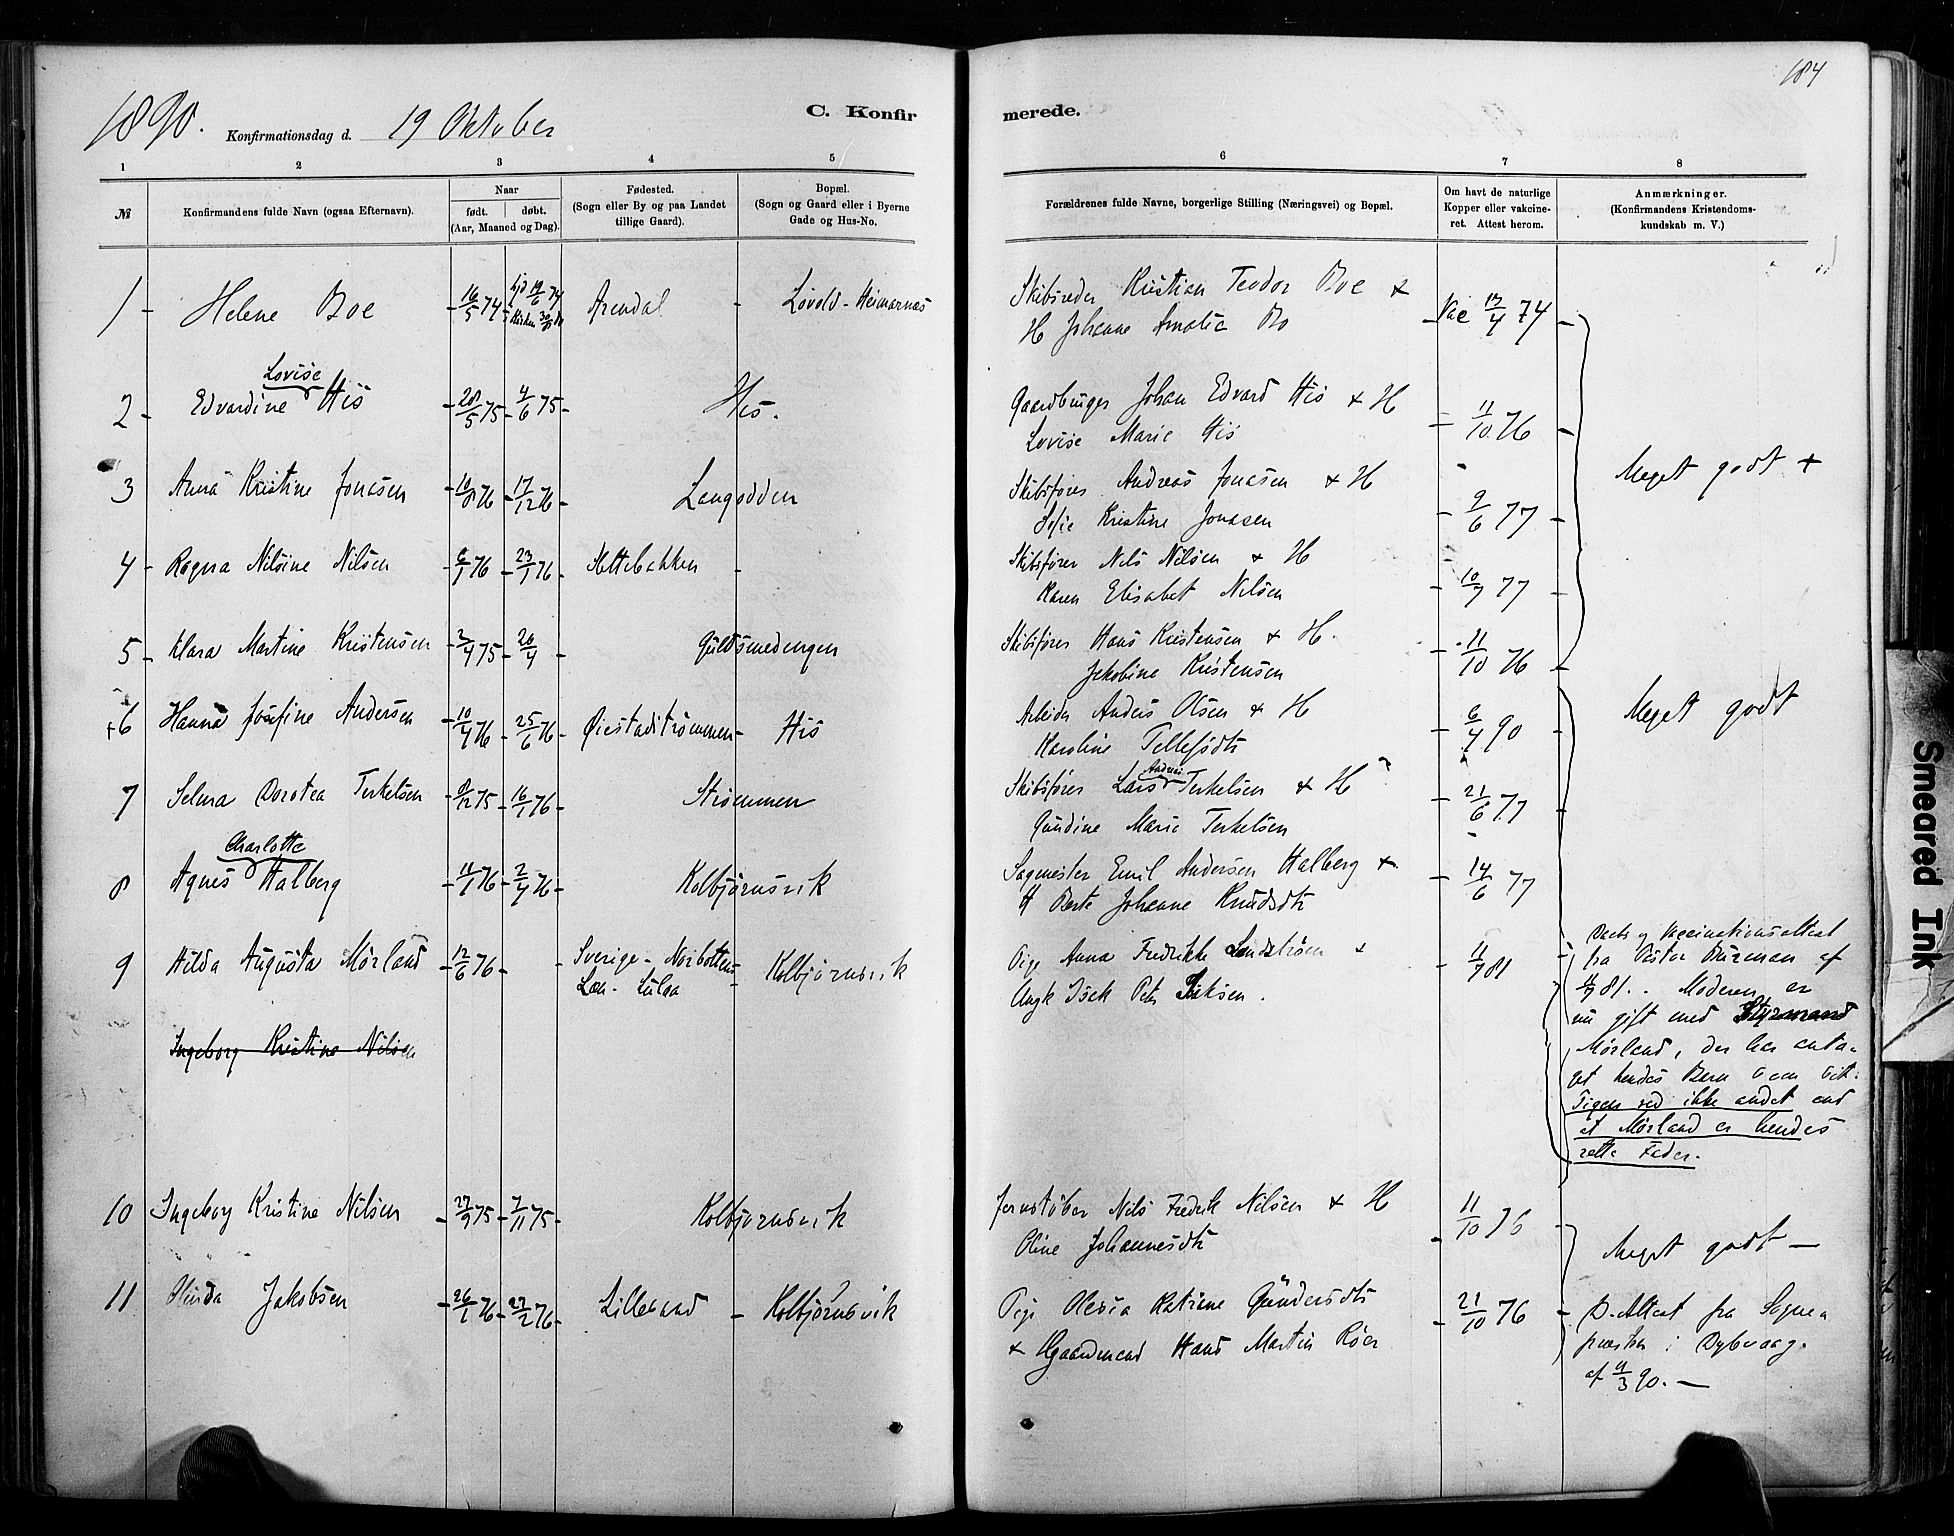 184
1890. Konfirmationsdag d. 19 Oktober C. Konfirmerede.
1 2 3 4 5 6 7 8
№
Konfirmandens fulde Navn (ogsaa Efternavn).
Naar
født. døbt.
(Aar, Maaned og Dag).
Fødested.
(Sogn eller By og paa Landet
tillige Gaard).
Bopæl.
(Sogn og Gaard eller i Byerne
Gade og Hus-No.
Forældrenes fulde Navne, borgerlige Stilling (Næringsvei) og Bopæl.
Om havt de naturlige
Kopper eller vakcine-
ret. Attest herom.
Anmærkninger.
(Konfirmandens Kristendoms-
kundskab m. V.)
1 - Helene Boe 16/5 74 Arendal - Løvold - Heimarnæs
Skibsreder Kristian Teodor Boe +
H Johanne Amalia Bo
Vac 13/4 74
Lovise
2 - Edvardine His 28/5 75 4/6 75 His.
Gaardbruger Johan Edvard His + H
Lovise Marie His
11/10 76
3 Anna Kristine Jonasen 10/8 76 17/12 76 Langodden
Skibsfører Andreas Jonasen + H
Sofie Kristine Jonasen
9/6 77
Meget godt +
4 - Ragna Nilsine Nilsen 6/1 76 23/1 76 Slettebakken -
Skibsfører Nils Nilsen + H
Karen Elisabet Nilsen
10/7 77
5 - Klara Martine Kristensen 2/4 75 20/4 Guldsmedengen
Skibsfører Hans Kristensen + H.
Jakobine Kristensen
11/10 76
+6 Hanna Josefine Andersen 10/4 76 25/6 76 Øiestadstrømmen - His
Arbeider Anders Olsen + H
Karoline Tellefsdtr
6/4 90
Meget godt
7 Selma Dorotea Terkelsen 8/12 75 16/1 76 Strømmen
Skibsfører Lars Andreas Terkelsen + H
Gundine Marie Terkelsen
21/6 77
Charlotte
8 Agnes Halberg 11/1 76 2/4 76 Kolbjørnsvik
Sagmester Emil Andersen Halberg +
H Berte Johanne Knudsdtr
14/6 77
9 Hilda Augusta Mørland 12/6 76 Sverige - Norbottens Kolbjørnsvik
Læn - Lulea
Pige Anna Fredrikke Lundstrøm +
Ungk Isak Petr
11/7 81
Daabs og Vaccinationsattest
fra Pastor Burman af
11/7 81. . Moderen er
nu gift med Styrmand
Mørland, der har anta-
get hendes Barn som sit.
Pigen ved ikke andet end
at Mørland er hendes
rette Fader.
Ingeborg Kristine Nilsen
10 Ingeborg Kristine Nilsen 27/9 75 7/11 75 Kolbjørnsvik
Jernstøber Nils Fredrik Nilsen + H
Oline Johannesdtr
11/10 76
Meget godt —
11 Olinda Jakobsen 26/1 76 27/2 76 Lillesand - Kolbjørnsvik
Pige Olevia Katrine Gundersdtr
+ Ugaardmand Hans Martin Røer
21/10 76
D. Attest fra Sogne-
præsten i Dybvaag.
af 9/3 90. —
Smeared Ink